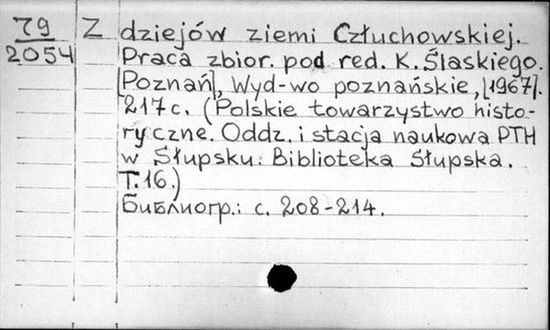 79 Z dziejów ziemi Człuchowskiej.
2054 Praca zbior. pod red. K. Ślaskiego.
[Poznań], Wyd-wo poznańskie, [1967].
217 с. (Polskie towarzystwo histo-
ryczne. Oddz. i stacja naukowa PTH
w Słupsku. Biblioteka Słupska.
T. 16.)
Библиогр.: с. 208-214.